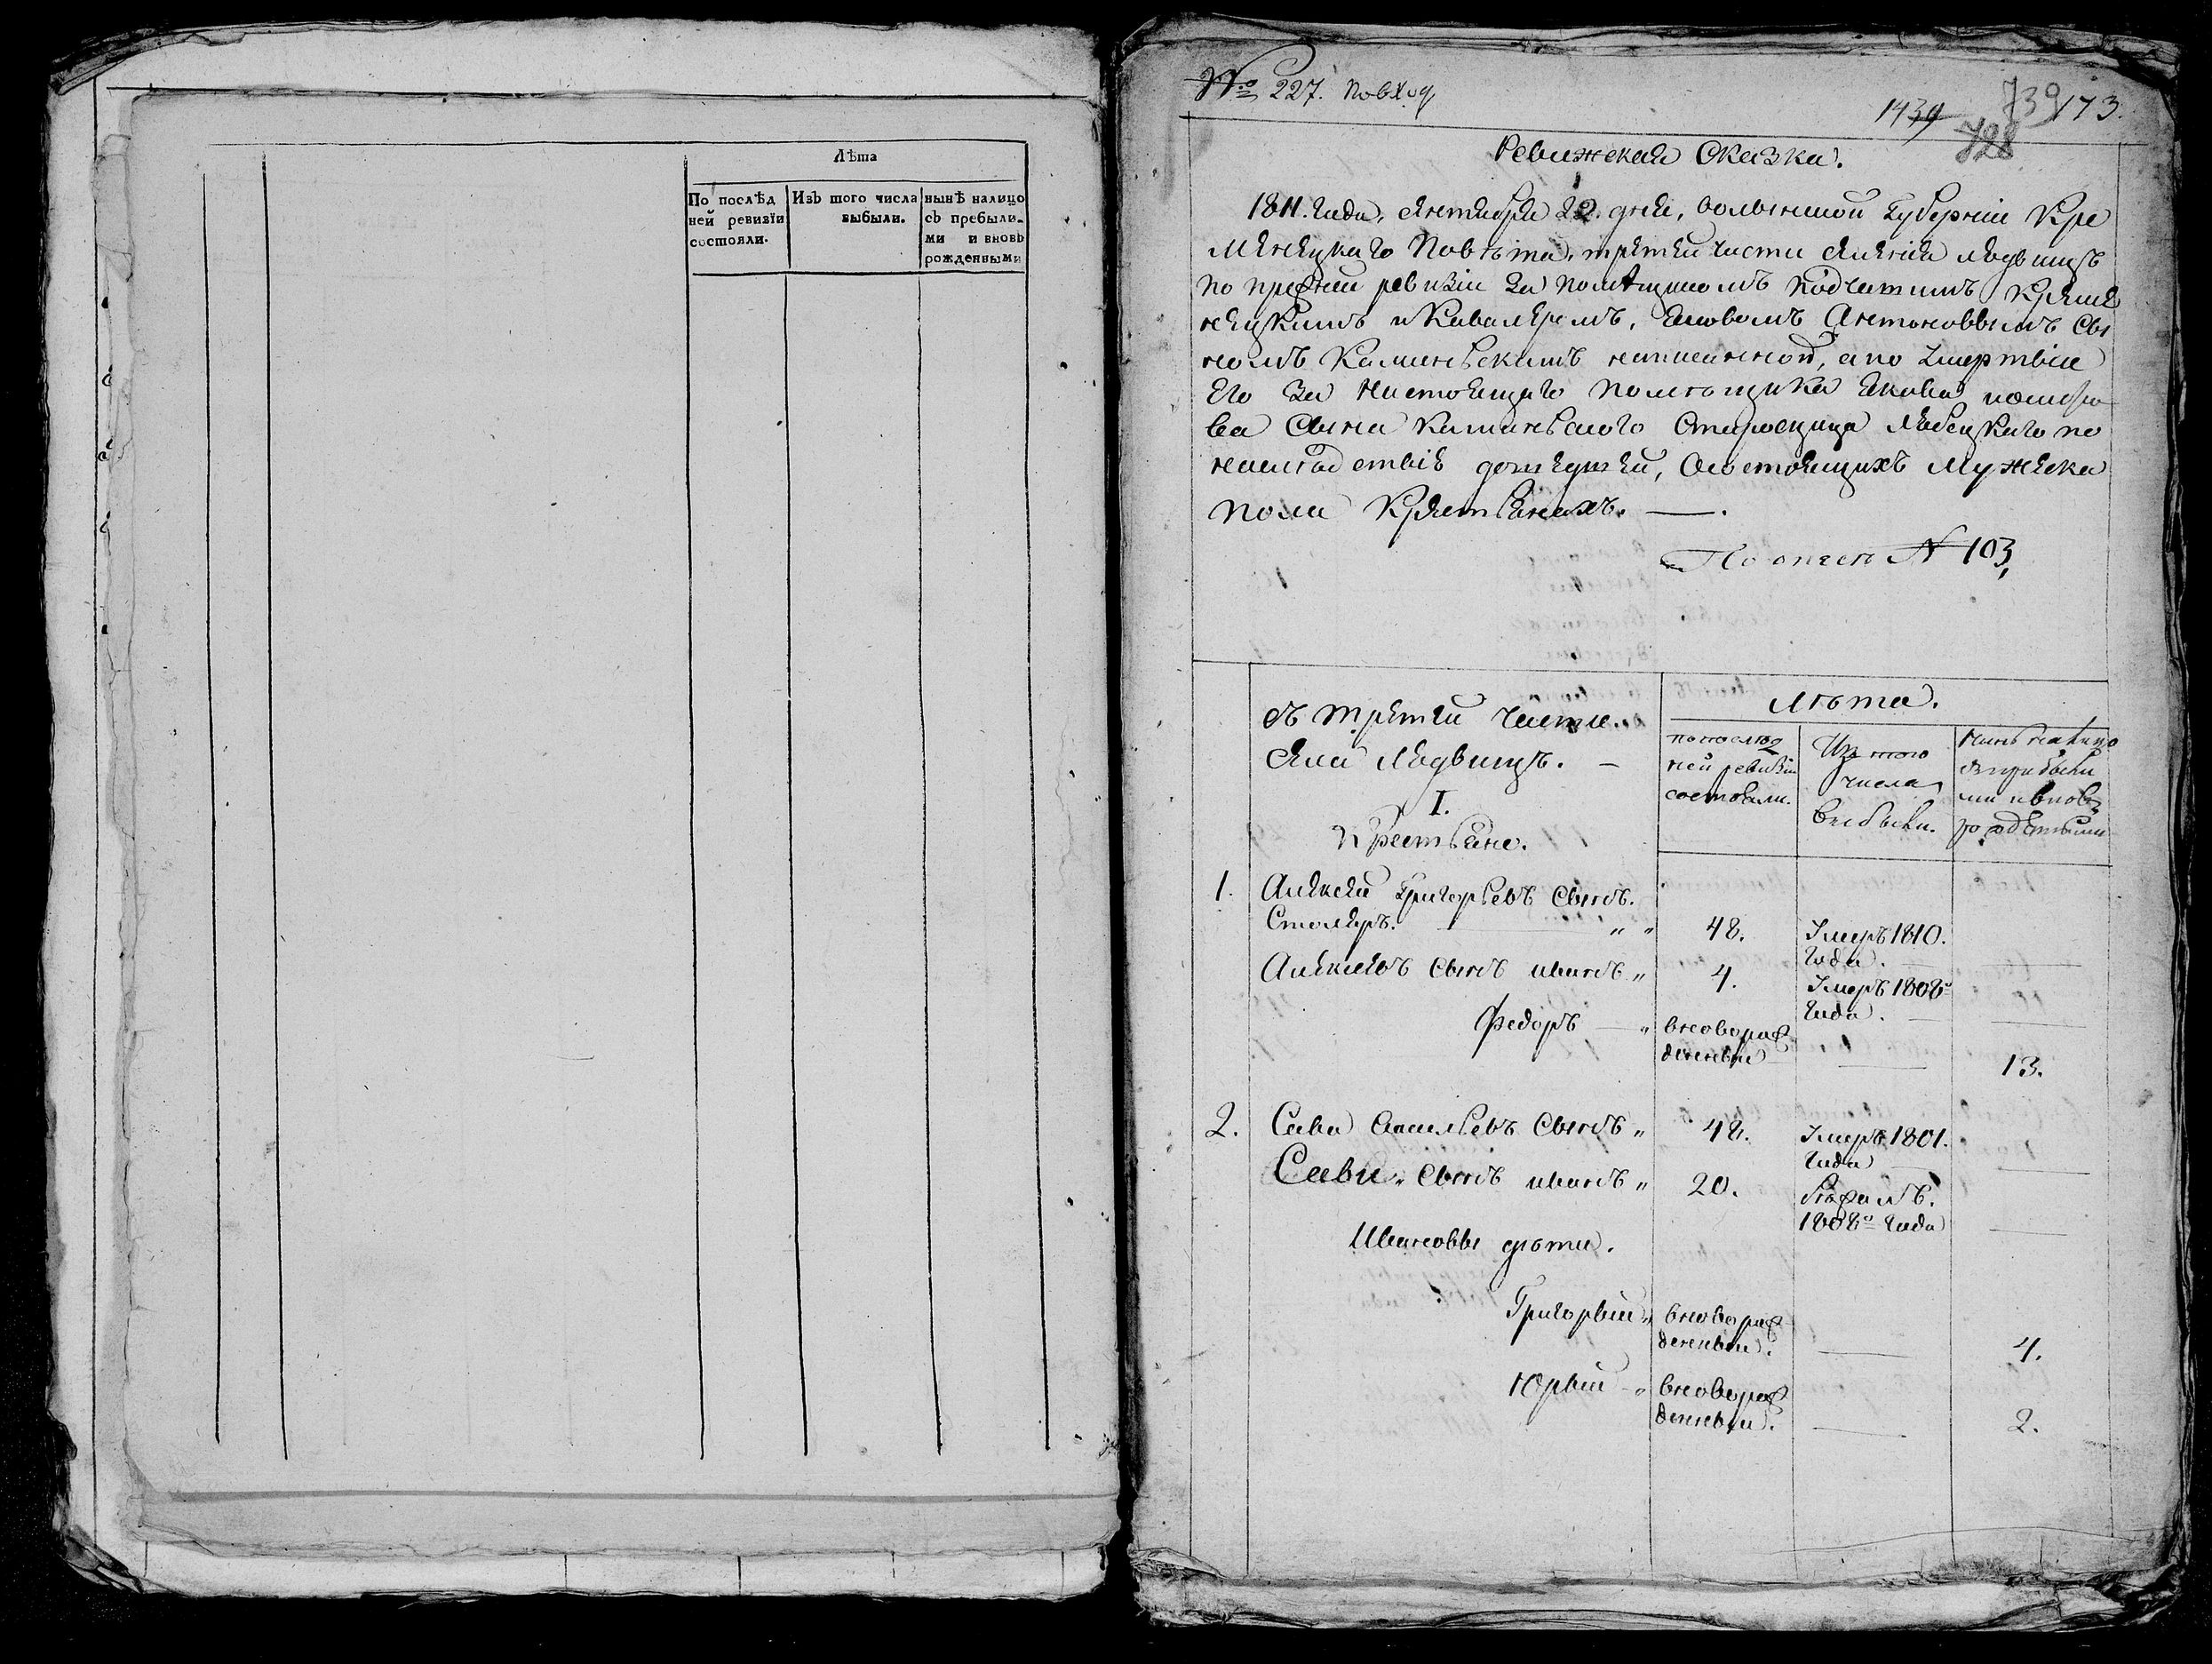 Лѣта
По послѣд
ней ревизїи
состояли.
Изъ того числа
выбыли.
нынѣ налицо
съ прибылы-
ми и вновь
рожденными
№ 227. По вход
1439 739 173.
728
Ревижская Сказка.
1811. Года, октября 22. дня, волынской Губернии Кре
менецкаго Повѣта, третей части Ледвищъ
по прежней ревизіи за помѣщикомъ Креме
нецкимъ и Кавалеромъ, Антоновымъ Сы
номъ написанной, а по Смертвіи
Его За Настоящаго помѣщика
ва Сына Старосцица по
Состоящихъ мужеска
пола Крестьянахъ. —.
По описи N 103,
въ третей части
села Ледвищъ. —
I.
Крестьяне.
Лѣта.
по послѣд
ней ревизіи
состояли.
Из того
числа
выбыли.
Нынѣ налицо
с прибылы
ми и вновь
рожденными
1. Алексей Григорьевъ Сынъ.
Столяръ. — „ „ 48. Умеръ 1810.
Года. —
Алексеевъ Сынъ иванъ „ 4. Умеръ 1808го
Года. —
Федоръ — „ вновораж
денный — 13.
2. Сава Васильевъ Сынъ „ 48. Умеръ 1801.
Года —
Сави. Сынъ иванъ „ 20. Бѣжалъ.
1808го Года —
Ивановы дѣти.
Григорый „ вновораж
денный. — 4.
Юрый - „ вновораж
денный. — 2.